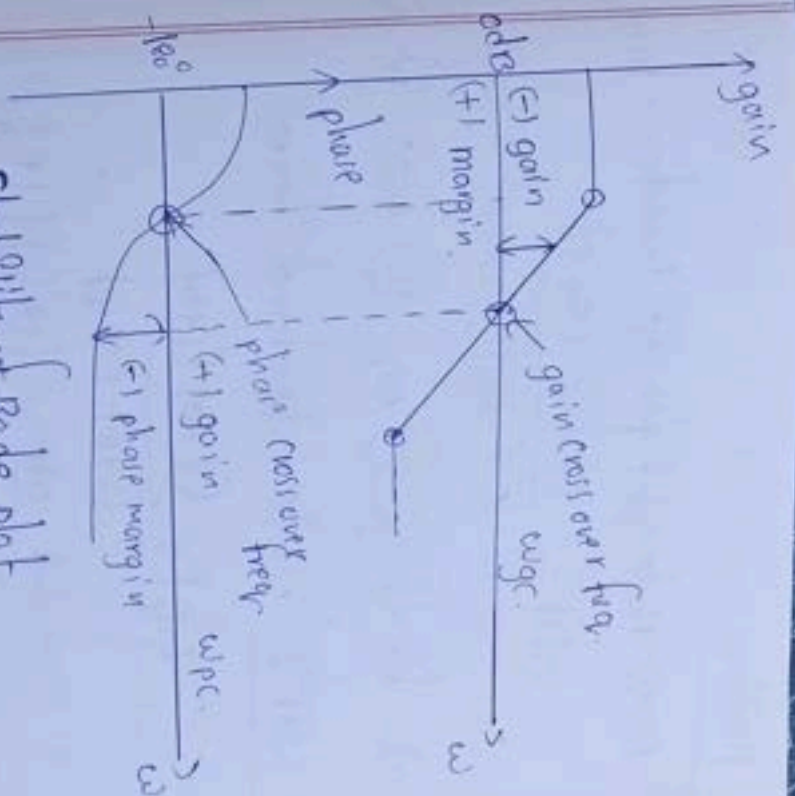 gain
0dB
(-) gain
(+) margin
gain cross over frq.
wgc.
ω
phase
-180°
phas cross over
freq.
wpc.
(+) gain
(-) phase margin
ω
of Bode plot